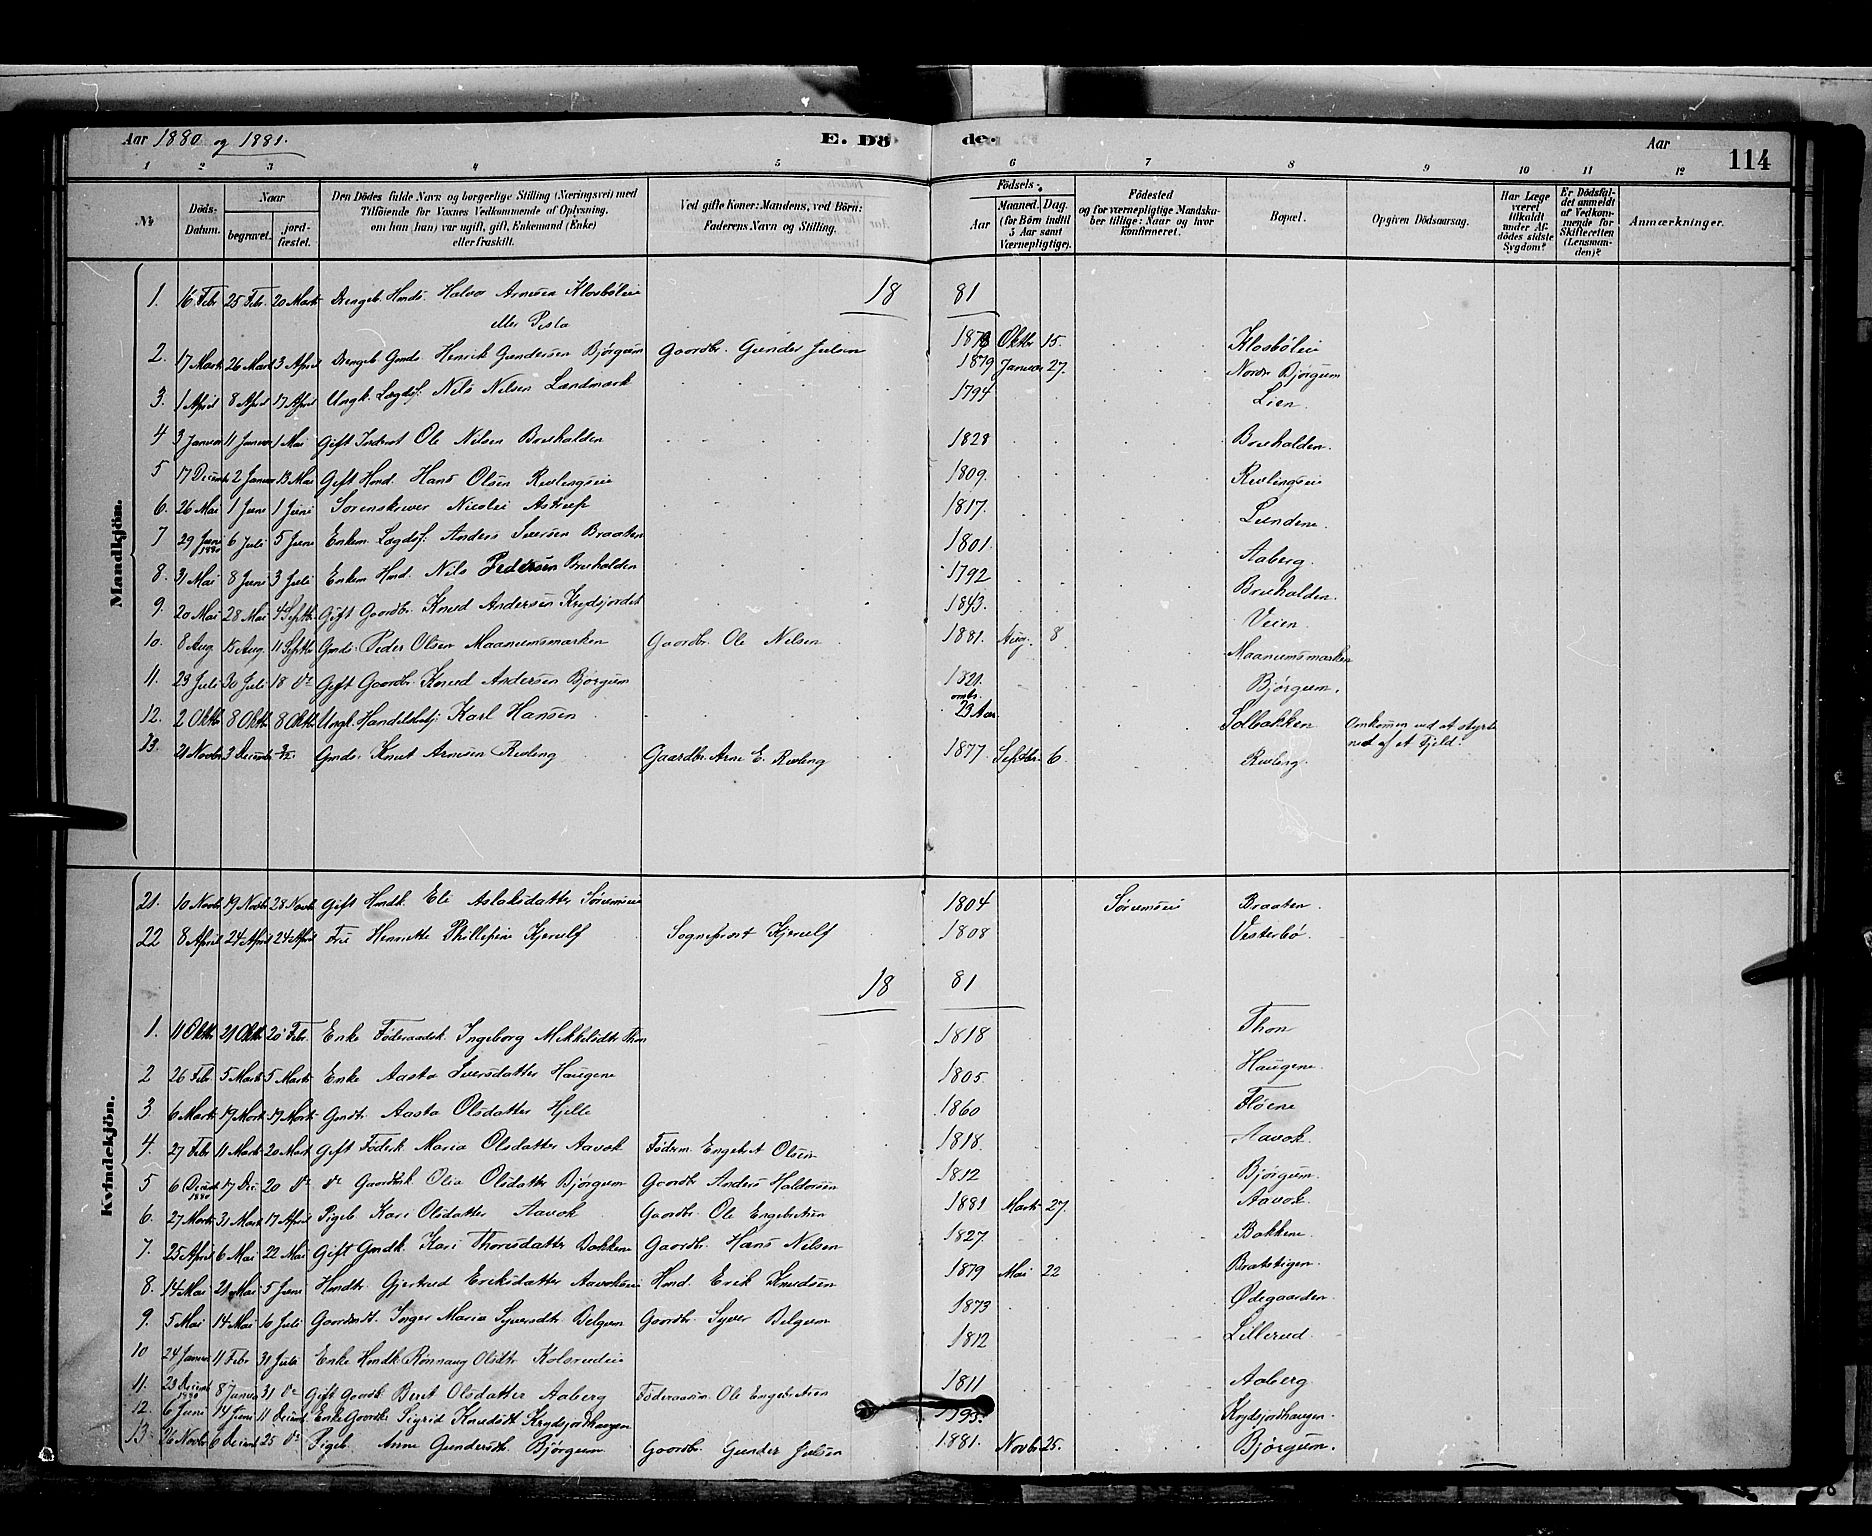 Aar 1880 og 1881. E. Dö de. Aar 114
1 2 3 4 5 6 7 8 9 10 11 12
No Döds-Datum. Naar begravet. jord-fæstet. Den Dödes fulde Navn og borgerlige Stilling (Næringsvei) med Tilföiende for Voxnes Vedkommende af Oplysning, om han (hun) var ugift, gift, Enkemand (Enke) eller fraskilt. Ved gifte Koner: Mandens, ved Börn: Faderens Navn og Stilling. Födsels- Aar Maaned. Dag. (for Börn indtil 5 Aar samt Værnepligtige). Födested og for værnepligtige Mandskaber tillige: Naar og hvor Konfirmeret. Bopæl. Opgiven Dödsaarsag. Har Læge været tilkaldt under Afdödes sidste Sygdom? Er Dödsfaldet anmeldt af Vedkommende for Skifteretten (Lensmanden)? Anmærkninger.
Mandkjön.
18 81
1. 16 Febr 25 Febr. 20 Marts Drengeb. Hmds. Halvor Arnesen Klosbøleie 1878 Oktbr 15. Klosbøleie
eller Pesla
2. 17 Marts 26 Marts 3 April Drengeb Gmds. Henrik Gundersen Bjørgum Gaardbr. Gunder Julsen 1879 Januar 27. Nordr Bjørgum
3. 1 April 8 April 17 April Ungk. Lægdsl. Nils Nilsen Landmark 1794 Lien.
4 3 Januar 11 Januar 1 Mai Gift Inderst Ole Nilsen Bruhalden 1828 Bruhalden.
5 17 Decemb 2 Januar 13 Mai Gift Hmd. Hans Olsen Revlingseie 1809. Revlingseie
6. 26 Mai 1 Juni 1 Juni Sorenskriver Nicolai Astrup 1817. Lundene.
7 29 Juni 1880 6 Juli 5 Juni Enkem. Lægdsl. Anders Iversen Braaten 1801. Aaberg.
8. 31 Mai 8 Juni 3 Juli Enkem Hmd. Nils Pedersen Bruhalden 1792 Bruhalden.
9. 20 Mai 28 Mai 4 Septbr. Gift Gaardbr. Knud Andersen Krydsjordet 1843. Veien.
10. 8 Aug. 15 Aug. 11 Septbr Gmds. Peder Olsen Maanumsmarken Gaardbr. Ole Nilsen 1881. Aug. 8. Maanumsmarken
11. 23 Juli 30 Juli 18 do Gift Gaardbr. Knud Andersen Bjørgum 1821. Bjørgum.
12. 2 Oktbr 8 Oktbr 8 Oktbr Ungk. Handelsbetj. Karl Hansen omtr. 23 Aar Solbakken Omkommen ved at styrte
ned af et Fjeld.
13. 21 Novbr 3 Decemb 3/12 Gmds. Knut Arnesen Revling Gaardbr. Arne E. Revling 1877 Septbr. 6. Revling.
Kvindekjön.
21. 10 Novbr 19 Novbr 28 Novbr Gift Hmdk Eli Aslaksdatter Sørumseie 1804 Sørumseie Braaten.
22 8 April 24 April 24 April Frue Henriette Phillipine Kjerulf Sogneprost Kjerulf 1808 Vesterbø.
18 81
1. 11 Oktbr 21 Oktbr 20 Febr. Enke Føderaadsk. Ingeborg Mikkelsdtr. Thon 1818 Thon
2 26 Febr 5 Marts 5 Marts Enke Aasta Iversdatter Haugene 1805. Haugene.
3. 6 Marts 19 Marts 19 Marts Gmdtr. Aasta Olsdatter Hjelle 1860 Fløene
4. 27 Febr 11 Marts 20 Marts Gift Føderk Maria Olsdatter Aavok Føderm. Engebret Olsen 1818. Aavok.
5 6 Decemb 1880 17 Dec. 20 do do Gaardbrk Olia Olsdatter Bjørgum Gaardbr. Anders Haldorsen 1812 Bjørgum.
6. 27 Marts 31 Marts 17 April Pigeb. Kari Olsdatter Aavok Gaardbr. Ole Engebretsen 1881 Marts 27. Aavok.
7. 25 April 6 Mai 22 Mai Gift Gmdk. Kari Thoresdatter Bakkene Gaardbr. Hans Nilsen 1827 Bakkene.
8. 14 Mai 21 Mai 5 Juni Hmdtr. Gjertrud Eriksdatter Aavokeie Hmd. Erik Knudsen 1879 Mai 22 Bratstigen.
9. 5 Mai 14 Mai 10 Juli Gaardmdt. Inger Maria Syversdtr. Belgum Gaardbr. Syver Belgum 1873 Ødegaarden.
10 24 Januar 11 Febr 31 Juli Enke Hmdk. Rønnaug Olsdtr. Kolsrudeie 1812 Lillerud.
11. 23 Decemb 1880 8 Januar 31 do Gift Gaardb. Berit Olsdatter Aaberg Føderaasm. Ole Engebretsen 1811 Aaberg.
12. 6 Juni 14 Juni 11 Decemb. Enke Gaardbr. Sigrid Knudsdt Krydsjordhaugen Krydsjordhaugen.
13. 26 Novbr 6 Decemb 25 do Pigeb. Anne Gundersdtr. Bjørgum Gaardbr. Gunder Julsen 1881. Novb. 25. Bjørgum.